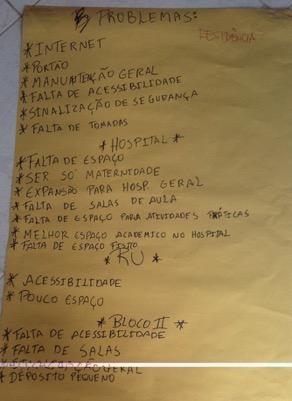 PROBLEMAS:
RESIDÊNCIA
* INTERNET
* PORTÃO
* MANUNTENÇÃO GERAL
* FALTA DE ACESSIBILIDADE
* SINALIZAÇÃO DE SEGURANÇA
* FALTA DE TOMADAS
* HOSPITAL *
* FALTA DE ESPAÇO
* SER SÓ MATERNIDADE
* EXPANSÃO PARA HOSP. GERAL
* FALTA DE SALAS DE AULA
* FALTA DE ESPAÇO PARA ATIVIDADES PRÁTICAS
* MELHOR ESPAÇO ACADEMICO NO HOSPITAL
* FALTA DE ESPAÇO FÍSICO
* RU *
* ACESSIBILIDADE
* POUCO ESPAÇO
* BLOCO II *
* FALTA DE ACESSIBILIDADE
* FALTA DE SALAS
* DEPOSITO PEQUENO